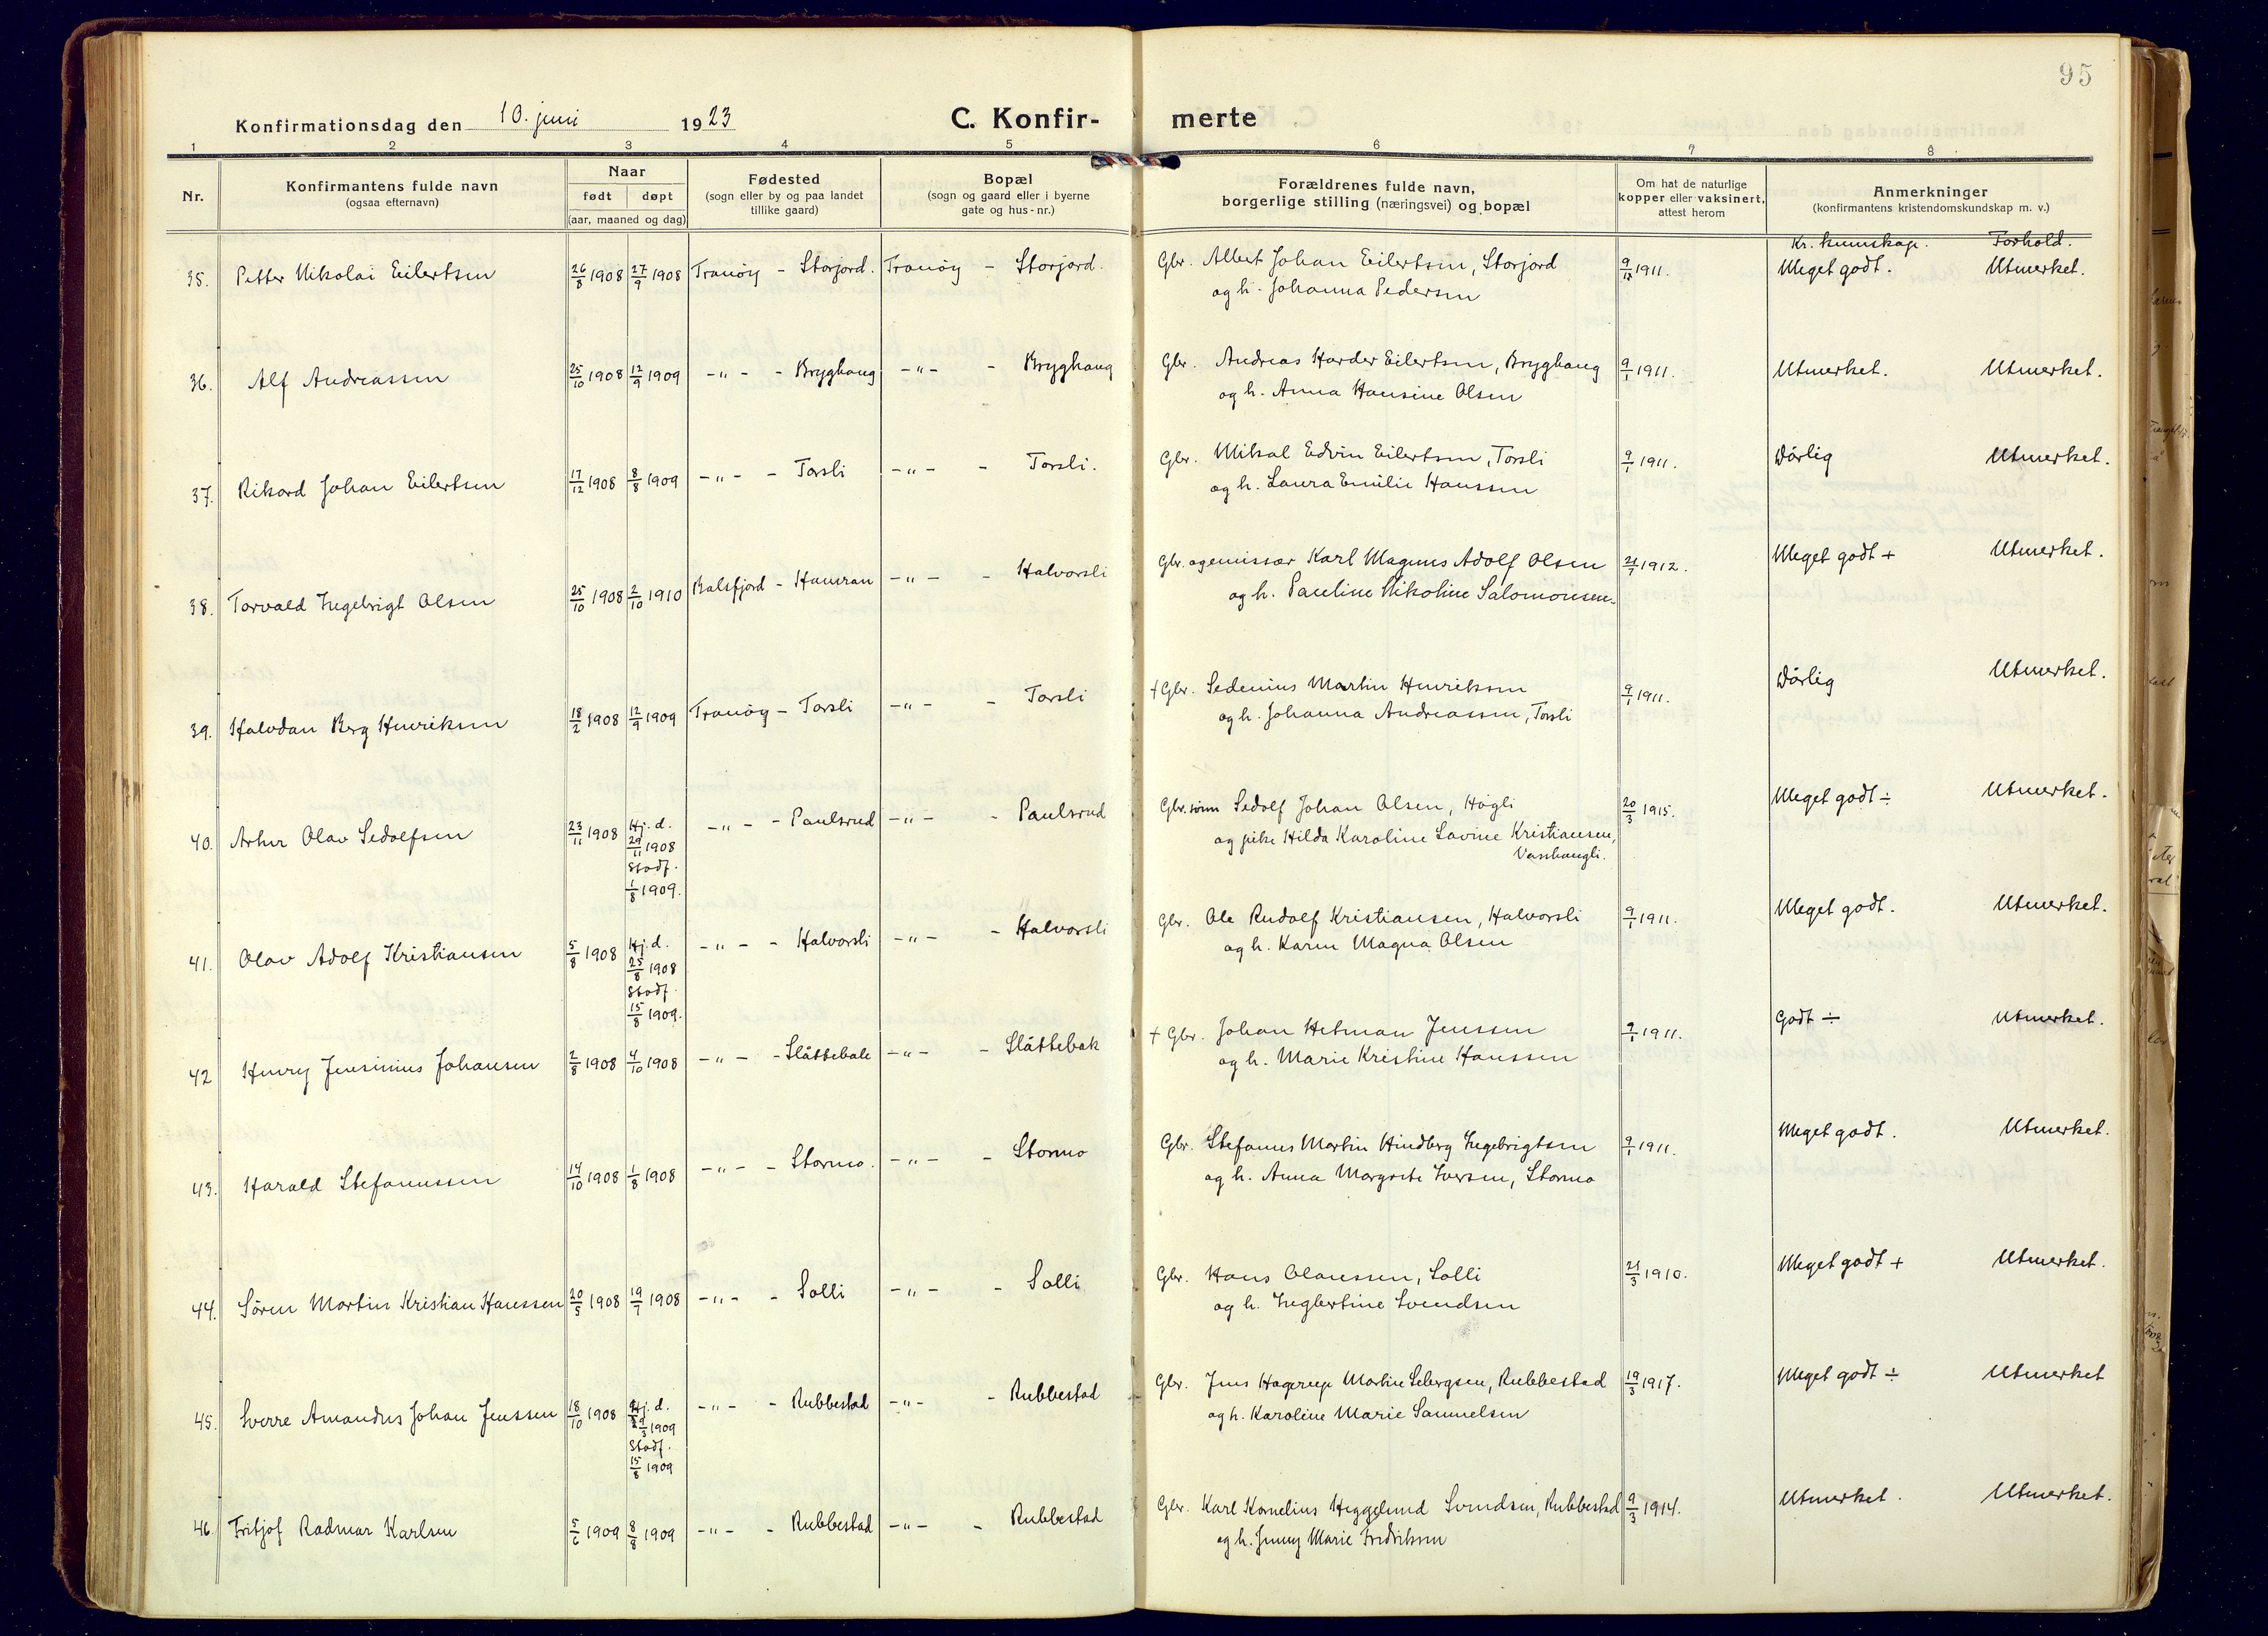 95
Konfirmationsdag den 10. juni 1923
C. Konfir- merte
1 2 3 4 5 6 7 8
Nr.
Konfirmantens fulde navn
(ogsaa efternavn)
Naar
født døpt
(aar, maaned og dag)
Fødested
(sogn eller by og paa landet
tillike gaard)
Bopæl
(sogn og gaard eller i byerne
gate og hus-nr.)
Forældrenes fulde navn,
borgerlige stilling (næringsvei) og bopæl
Om hat de naturlige
kopper eller vaksinert,
attest herom
Anmerkninger
(konfirmantens kristendomskundskap m. v.)
Kr. kunnskap. Forhold.
35. Petter Nikolai Eilertsen 26/8 1908 27/9 1908 Tranöy - Storjord. Tranöy - Storjord. Gbr. Albert Johan Eilertsen, Storjord 9/12 1911. Meget godt. Utmerket.
og h. Johanna Pedersen
36. Alf Andreassen 25/10 1908 12/9 1909 -"- - Brygghaug -"- - Brygghaug Gbr. Andreas Harder Eilertsen, Brygghaug 9/1 1911. Utmerket. Utmerket.
og h. Anna Hansine Olsen
37. Rikard Johan Eilertsen 17/12 1908 8/8 1909 -"- - Torsli -"- - Torsli. Gbr. Mikal Edvin Eilertsen, Torsli 9/1 1911. Dårlig Utmerket.
og h. Laura Emilie Hanssen
38. Torvald Ingebrigt Olsen 25/10 1908 2/10 1910 Balsfjord - Hamran -"- - Halvorsli Gbr. og emissær Karl Magnus Adolf Olsen 21/7 1912. Meget godt + Utmerket.
og h. Pauline Nikoline Salomonsen.
39. Halvdan Berg Henriksen 18/2 1908 12/9 1909 Tranöy - Torsli -"- - Torsli + Gbr. Sedenius Martin Henriksen 9/1 1911. Dårlig Utmerket.
og h. Johanna Andreassen, Torsli
40. Artur Olav Sedolfsen 23/11 1908 Hj. d. 29/11 1908 Stadf. 1/8 1909. -"- - Paulsrud -"- - Paulsrud Gbr. sönn Sedolf Johan Olsen, Högli 20/3 1915. Meget godt ÷ Utmerket.
og pike Hilda Karoline Lovine Kristiansen,
Vasshaugli.
41. Olav Adolf Kristiansen 5/8 1908 Hj. d. 25/8 1908 Stadf. 15/8 1909. -"- - Halvorsli -"- - Halvorsli Gbr. Ole Rudolf Kristiansen, Halvorsli 9/1 1911. Meget godt. Utmerket.
og h. Karen Magna Olsen
42 Henry Jensinius Johansen 2/8 1908 4/10 1908 -"- - Slåttebak -"- - Slåttebak + Gbr. Johan Hetman Jenssen 9/1 1911. Godt ÷ Utmerket.
og h. Marie Kristine Hanssen
43. Harald Stefanussen 14/10 1908 1/8 1908 -"- - Stormo. -"- - Stormo Gbr. Stefanus Martin Hindberg Ingebrigtsen 9/1 1911. Meget godt. Utmerket.
og h. Anna Margrete Iversen, Stormo
44. Sören Martin Kristian Hanssen 20/5 1908 19/7 1908 -"- - Solli -"- - Solli Gbr. Hans Olaussen, Solli 21/3 1910. Meget godt + Utmerket.
og h. Inglertine Svendsen
45. Sverre Amandus Johan Jenssen 18/10 1908 Hj. d. 1909 Stadf. 15/8 1909 -"- - Rubbestad -"- - Rubbestad Gbr. Jens Hagerup Martin Sebergsen, Rubbestad 19/3 1917. Meget godt ÷ Utmerket
og h. Karoline Marie Samuelsen
46. Fritjof Radmar Karlsen 5/6 1909 8/8 1909 -"- - Rubbestad -"- - Rubbestad Gbr. Karl Kornelius Heggelund Svendsen, Rubbestad 9/3 1914. Utmerket. Utmerket.
og h. Jenny Marie Fredriksen